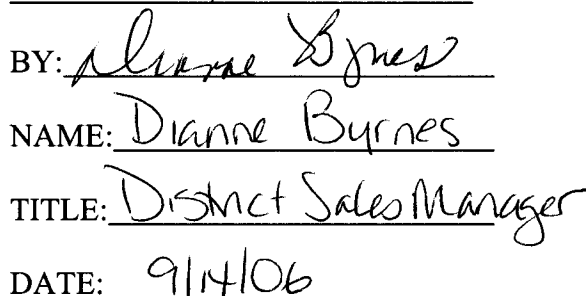 BY: Dianne Byrnes
NAME: Dianne Byrnes
TITLE: District Sales Manager
DATE: 9/14/06